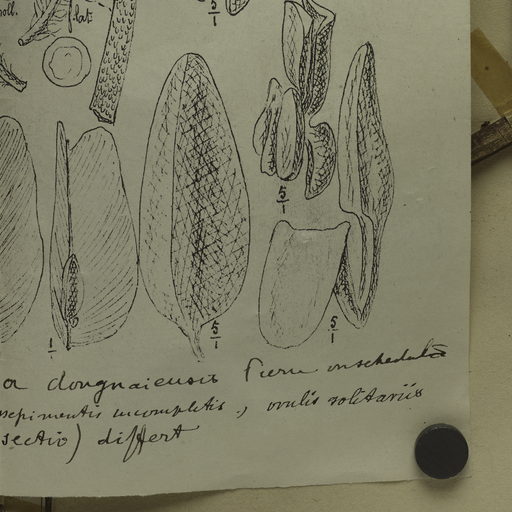 oll.
lat:
5/1
5/1
1
5/1
5/1
a dongnaiensis Pierre in schedula
sepimentis incompletis, ovulis solitariis
sectio) differt